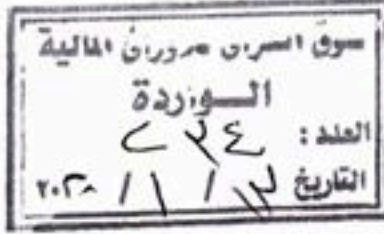 سوق العراق للاوراق المالية
الـــواردة
العدد : ٢٣٤
التاريخ / ١ /